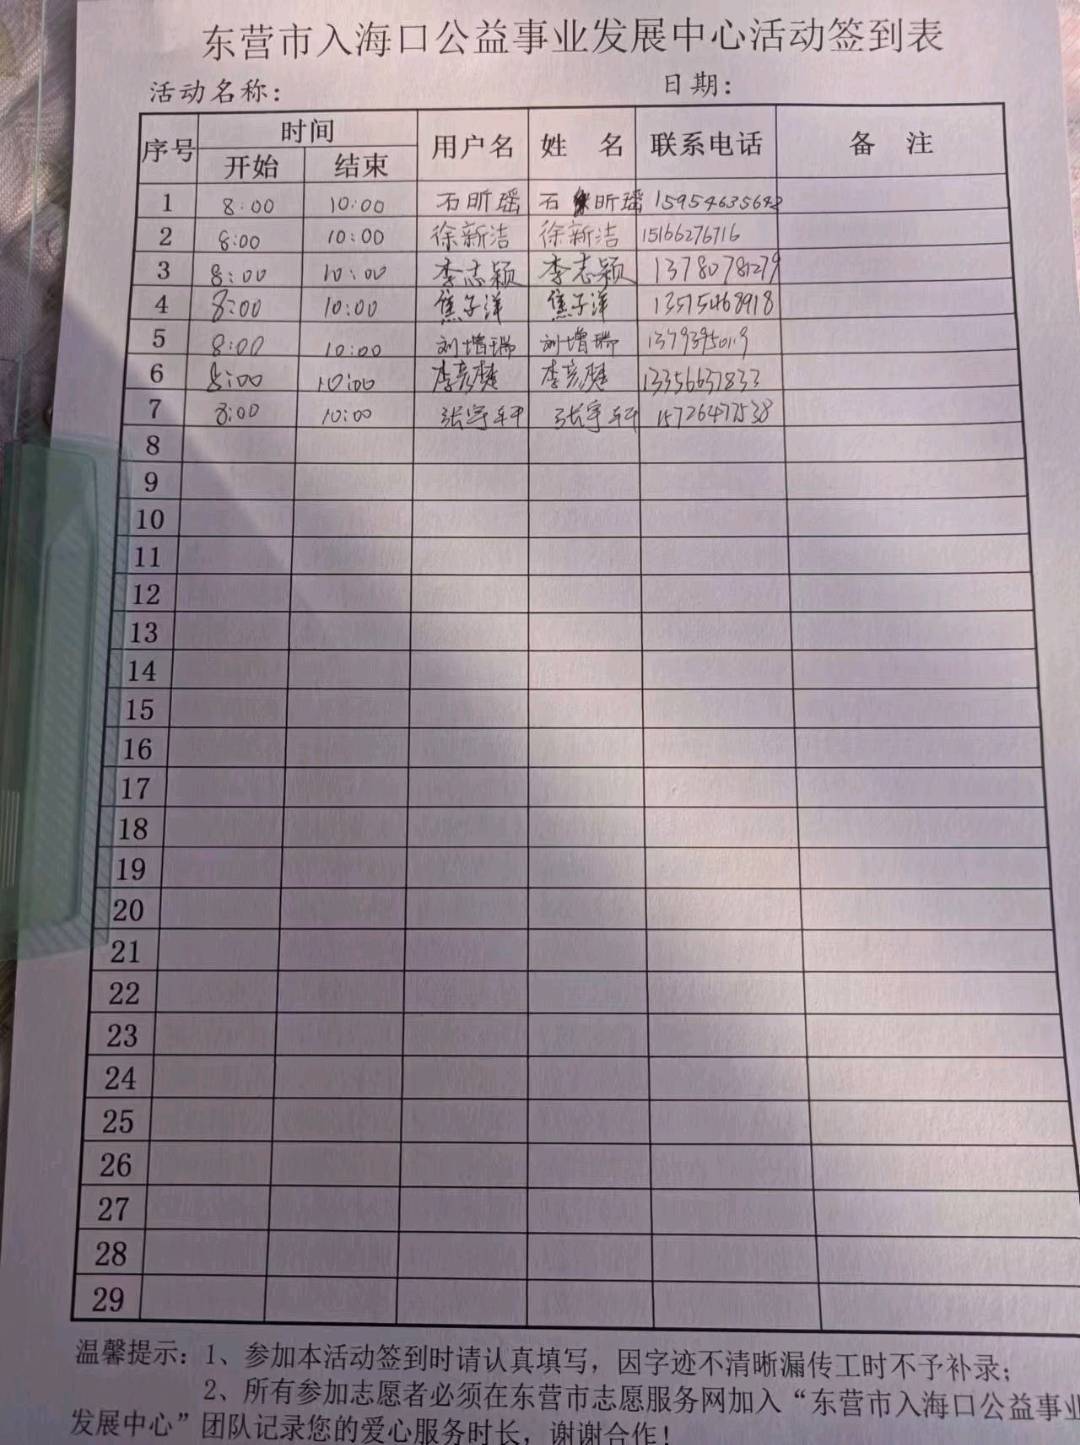 东营市入海口公益事业发展中心活动签到表
活动名称： 日期：
序号 时间 用户名 姓 名 联系电话 备 注
开始 结束
1 8:00 10:00 石昕瑶 石昕瑶 15954635642
2 8:00 10:00 徐新洁 徐新洁 15166276716
3 8:00 10:00 李志颖 李志颖 13780781279
4 8:00 10:00 焦子洋 焦子洋 13515468918
5 8:00 10:00 刘增瑞 刘增瑞
6 8:00 10:00 李彦樾 李彦樾 13356637833
7 8:00 10:00 张宇轩 张宇轩 15726472538
8
9
10
11
12
13
14
15
16
17
18
19
20
21
22
23
24
25
26
27
28
29
温馨提示：1、参加本活动签到时请认真填写，因字迹不清晰漏传工时不予补录；
2、所有参加志愿者必须在东营市志愿服务网加入“东营市入海口公益事业
发展中心”团队记录您的爱心服务时长，谢谢合作！